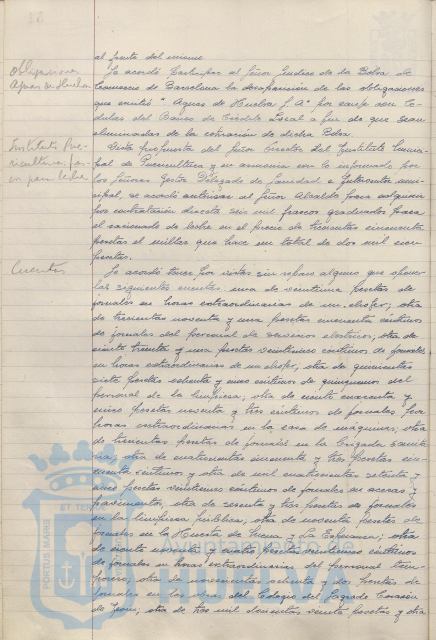 al frente del mismo
Obligaciones Aguas de Huelva
Se acordó participar al Señor Síndico de la Bolsa de
Comercio de Barcelona la desaparición de las obligaciones
que emitió "Aguas de Huelva S.A" por canje con Cé-
dulas del Banco de Crédito Local a fin de que sean
eliminadas de la cotización de dicha Bolsa.
Instituto Pue-
ricultura
para leche
Vista propuesta del Señor Director del Instituto Munici-
pal de Puericultura y en armonía con lo informado por
los Señores Gestor Delegado de Sanidad e Interventor muni-
cipal, se acordó autorizar al Señor Alcalde para adquirir
por contratación directa seis mil frascos graduados para
el racionado de leche en el precio de trescientas cincuenta
pesetas el millar que hace un total de dos mil cien
pesetas.
Cuentas
Se acordó tener por vistas sin reparo alguno que oponer
las siguientes cuentas: una de veintiuna pesetas de
jornales en horas extraordinarias de un chofer; otra
de trescientas noventa y una pesetas cincuenta céntimos
de jornales del personal de servicios electricos; otra de
ciento treinta y una pesetas veinticinco céntimos de jornales
en horas extraordinarias de un chofer; otra de quinientas
siete pesetas ochenta y cinco céntimos de quinquenios del
personal de la limpieza; otra de ciento cuarenta y
cinco pesetas noventa y tres céntimos de jornales por
horas extraordinarias en la casa de máquinas; otra
de trescientas pesetas de jornales en la brigada sanita
ria; otra de cuatrocientas cincuenta y tres pesetas cin-
cuenta céntimos y otra de mil cuatrocientas setenta y
cinco pesetas veinticinco céntimos de jornales en aceras y
pavimentos; otra de sesenta y tres pesetas de jornales
en la limpieza pública; otra de noventa pesetas de
jornales en la Huerta de Mena y La Esperanza; otra
de ciento noventa y cuatro pesetas veinticinco céntimos
de jornales en horas extraordinarias del personal tem-
porero; otra de novecientas ochenta y dos pesetas de
jornales en las obras del Colegio del Sagrado Corazón
de Jesús; otra de tres mil doscientas veinte pesetas y otra
PORTUS MARIS
ET TERRÆ
Ayuntamiento de